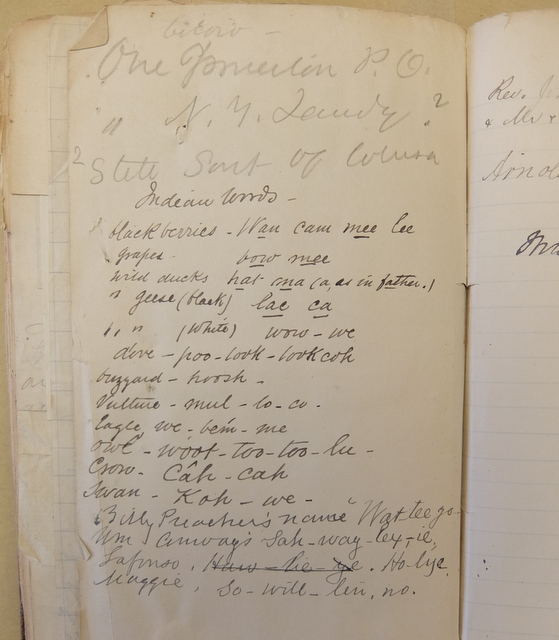 below -
One P.O.
" N. Y. ?
2 State Sent of Colusa
Indian Words -
blackberries - Wan cam mee lee
grapes. bow mee
wild ducks hat ma (a, as in father.)
" geese (black) lac ca
" " (White) wow - we
dove - poo - look - lookcoh
buzzard - hoosh -
Vulture - mul - lo - co.
Eagle we - bem - me
owl - woot - too - too - lu -
Crow - Câh - cah
Swan - Koh - we -
Billy Preacher's name "Wat-tee go-
Wm Conway's Sah - way - lex - ie,
Lafonso, Haw - lie - ye. Ho-lye.
Maggie, So - will - lin, no.
Rev.
& Mr &